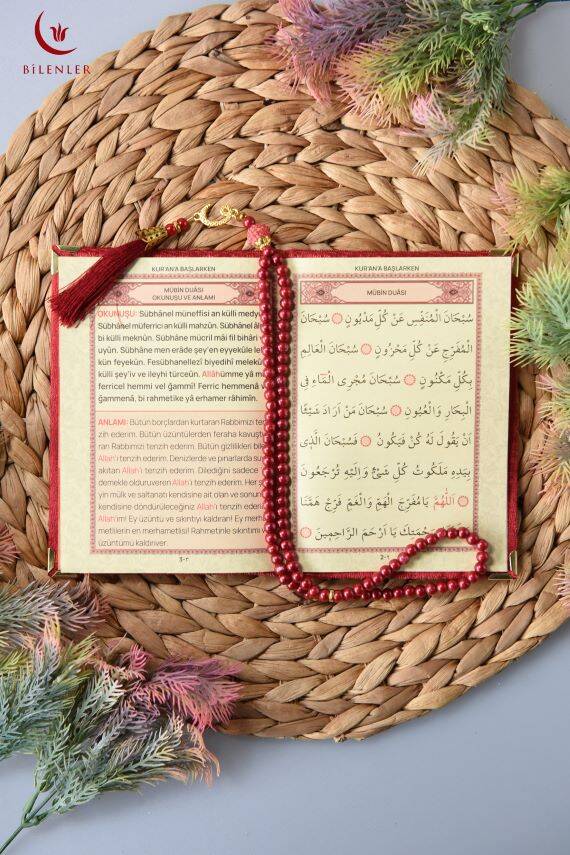 BİLENLER
KUR'AN'A BAŞLARKEN
MÜBİN DUÂSI
OKUNUŞU VE ANLAMI
OKUNUŞU: Sübhânel müneffisi an külli
Sübhânel müferrici an külli mahzûn. Sübhânel
bi külli meknûn. Sübhâne mücril mâi fil bihâri
uyûn. Sübhâne men erâde şey'en eyyekûle
kün feyekûn. Fesübhanellezî biyedihî melekû
külli şey'iv ve ileyhi türceûn. Allâhümme yâ mü
ferricel hemmi vel ğammî! Ferric hemmenâ
ğammenâ, bi rahmetike yâ erhamer râhimîn.
ANLAMI: Bütün borçlardan kurtaran Rabbimizi
zih ederim. Bütün üzüntülerden feraha
ran Rabbimizi tenzih ederim. Bütün gizlilikleri
Allah'ı tenzih ederim. Denizlerde ve pınarlarda
akıtan Allah'ı tenzih ederim. Dilediğini sadece
demekle olduruveren Allah'ı tenzih ederim. Her
yin mülk ve saltanatı kendisine ait olan ve
kendisine döndürüleceğiniz Allah'ı tenzih
Allah'ım! Ey üzüntü ve sıkıntıyı kaldıran! Ey
metlilerin en merhametlisi! Rahmetinle sıkıntımı
üzüntümü kaldırıver.
3-٣
KUR'AN'A BAŞLARKEN
MÜBİN DUÂSI
سُبْحَانَ الْمُنَفِّسِ عَنْ كُلِّ مَدْيُونٍ سُبْحَانَ
الْمُفَرِّجِ عَنْ كُلِّ مَحْزُونٍ سُبْحَانَ الْعَالِمِ
بِكُلِّ مَكْنُونٍ سُبْحَانَ مُجْرِى الْمَاءِ فِى
الْبِحَارِ وَالْعُيُونِ سُبْحَانَ مَنْ اَرَادَ شَيْئًا
اَنْ يَقُولَ لَهُ كُنْ فَيَكُونُ فَسُبْحَانَ الَّذِى
بِيَدِهِ مَلَكُوتُ كُلِّ شَىْءٍ وَاِلَيْهِ تُرْجَعُونَ
اَللّٰهُمَّ يَامُفَرِّجَ الْهَمِّ وَالْغَمِّ فَرِّجْ هَمَّنَا
يَا اَرْحَمَ الرَّاحِمِينَ
2-٢